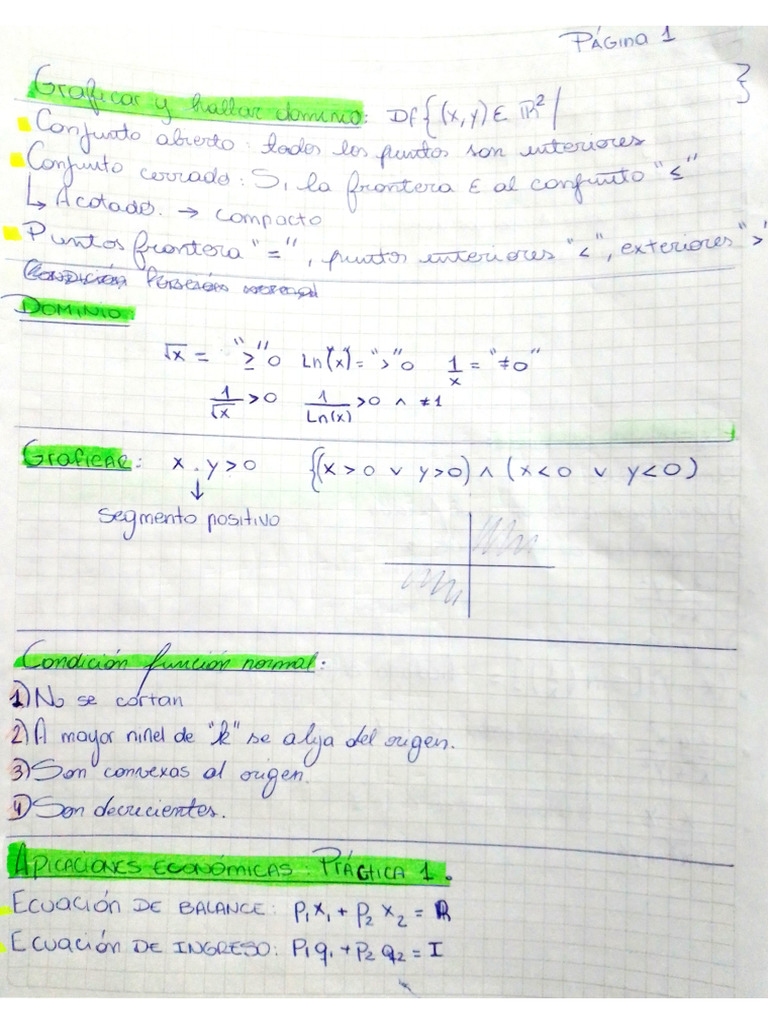 Página 1
Graficar y hallar dominio: Df {(x,y) ∈ ℝ² | }
Conjunto abierto: todos los puntos son interiores
Conjunto cerrado: Si, la frontera ∈ al conjunto "≤"
↳ Acotado. → compacto
Puntos frontera "=", puntos interiores "<", exteriores ">"
DOMINIO:
√x = "≥"0 Ln(x) = ">"0 1/x = "≠0"
1/√x >0 1/Ln(x) >0 ∧ ≠1
Graficar: x . y > 0 {(x>0 ∨ y>0) ∧ (x<0 ∨ y<0)
↓
segmento positivo
Condición función normal:
1) No se cortan
2) A mayor ninel de "k" se alja del origen.
3) Son convexas al origen.
4) Son decrecientes.
APICACIONES ECONÓMICAS: PRÁCTICA 1.
ECUACIÓN DE BALANCE: P₁X₁ + P₂ X₂ = R
ECUACIÓN DE INGRESO: P₁q₁ + P₂ q₂ = I